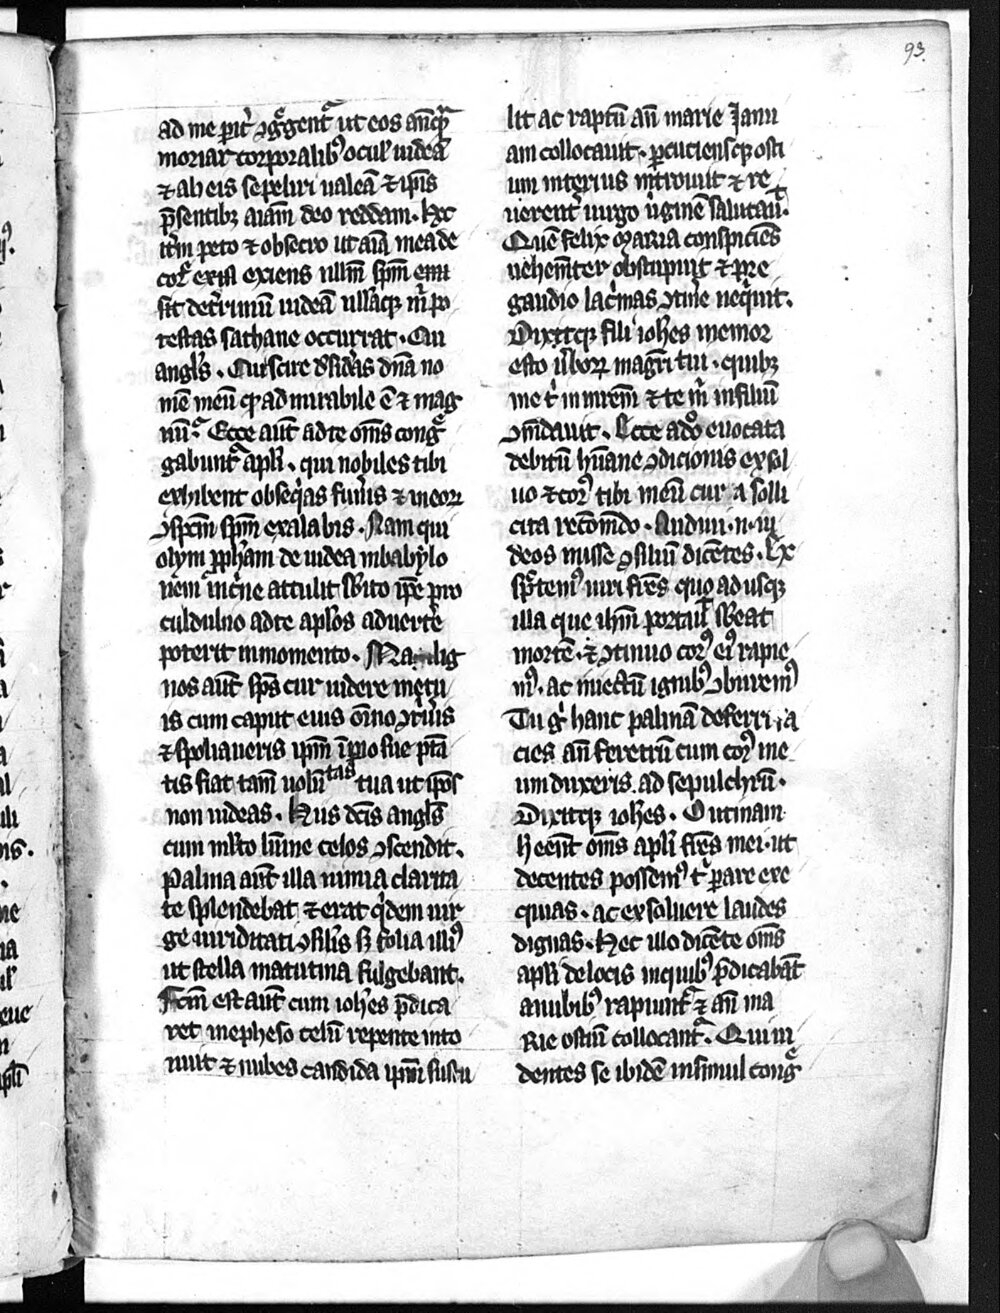 93.
ad me parit᷑ ꝯg̃gent᷑ ut eos anꝙ̃
moriar corporalib⁹ ocul' uideã
⁊ ab eis sepeliri ualeã ⁊ ip̃is
p̃sentibꝫ aĩam deo reddam. Hoc
it̃m peto ⁊ obsecro ut aĩa mea de
cor̃e exiens ullm̃ sp̃m
uideã ullaqꝫ m̃ po
testas sathane occurrat. Cui
angl's. Cur scire d̾sid̾as dñã no
mẽ meũ qd̾ admirabile ẽ ⁊ mag
nũ. Ecce aũt ad te om̃s cong̃
gabunt᷑ apl̃i. qui nobiles tibi
exhibent obseq̾as fun̾is ⁊ in eoꝝ
ꝯspc̃m sp̃m exalabis. Nam qui
olym p̃ph̃am de iudea in babylo
nem in c̾ne attulit s̾bito ip̃e pro
cul dubio ad te apl̃os aduert̾e
poterit in momento. Malig
nos aũt sp̃s cur uidere metu
is cum caput eius om̃ino ꝯt̾u̾is
⁊ spoliaueris ip̃m imp̾io sue p̃ta
tis fiat tam̃ uolũtas tua ut ip̃os
non uideas. Hiis dc̃is angl̃s
cum ml̾to lum̃ine celos ꝯscendit.
Palma aũt illa nimia clarita
te splendebat ⁊ erat q̾dem uir
ge uiriditati ꝯsil̃is sꝫ folia illi⁹
ut stella matutina fulgebant.
Fc̃m est aũt cum ioh̾es p̃dica
ret in epheso celũ repente into
nuit ⁊ nubes candida ip̃m sustu
lit ac raptũ añ marie Janu
am collocauit. ꝑcuciensqꝫ osti
um interius introiuit ⁊ re
uerent᷑ uirgo u̾ginẽ salutau̾.
Quẽ felix Maria conspiciẽs
uehem̃ter obstupuit ⁊ pre
gaudio lac̾mas ꝯtin̾e neq̾uit.
Dixitqꝫ fili ioh̾es memor
esto u̾boꝝ mag̃ri tui. quibꝫ
me t̾ in mr̃em ⁊ te m̃ in filiũ
ꝯm̃dauit. Ecce a dño euocata
debitũ hũane ꝯdicionis exsol
uo ⁊ corp⁹ tibi meũ cura solli
cita recõm̃do. Audiui.n. iu
deos iniisse ꝯsiliũ dicẽtes. Ex
sp̃tem⁹ uiri fr̃es quo adusqꝫ
illa que ihm̃ portauit s̾beat
mortẽ. ⁊ ꝯtinuo corp⁹ ei⁹ rapie
m⁹. ac iniectũ ignib⁹ ꝯburem⁹
Tu g̾ hanc palmã deferri fa
cies añ feretrũ cum corp⁹ me
um duxeris ad sepulchrũ.
Dixitqꝫ ioh̾es. O utinam
hic eẽnt om̃s apl̃i fr̃es mei. ut
decentes possem⁹ t̾ ꝑare exe
quias. ac exsoluere laudes
dignas. Hec illo dicẽte om̃s
apl̃i de locis in quib⁹ p̃dicabãt
a nubib⁹ rapiunt᷑ ⁊ añ ma
rie ostiũ collocant᷑. Qui ui
dentes se ibidẽ in simul cong̃